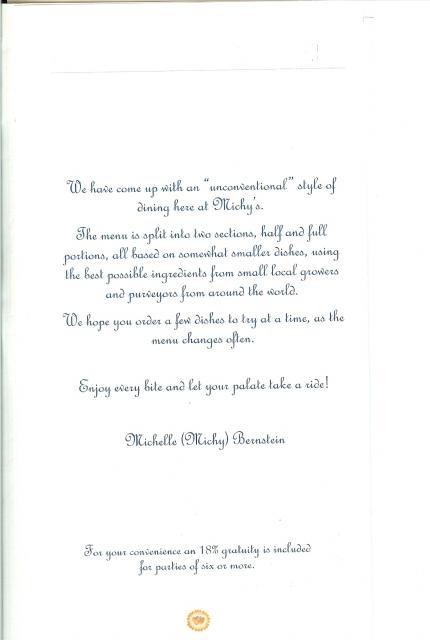 We have come up with an "unconventional" style of
dining here at Michy's.
The menu is split into two sections, half and full
portions, all based on somewhat smaller dishes, using
the best possible ingredients from small local growers
and purveyors from around the world.
We hope you order a few dishes to try at a time, as the
menu changes often.
Enjoy every bite and let your palate take a ride!
Michelle (Michy) Bernstein
For your convenience an 18% gratuity is included
for parties of six or more.